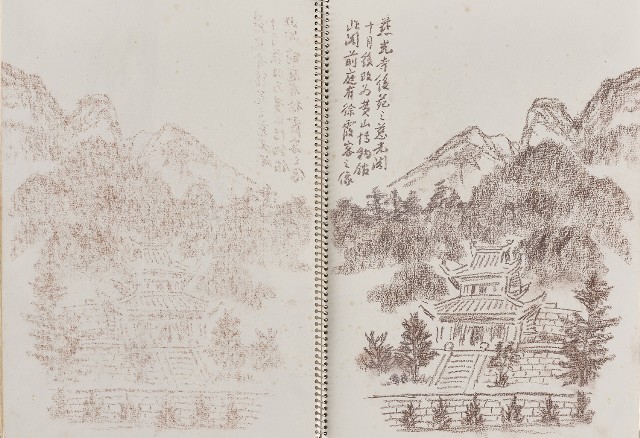 慈光寺後苑之慈光閣
十月後改为黄山博物館
此阁前庭有徐霞客之像